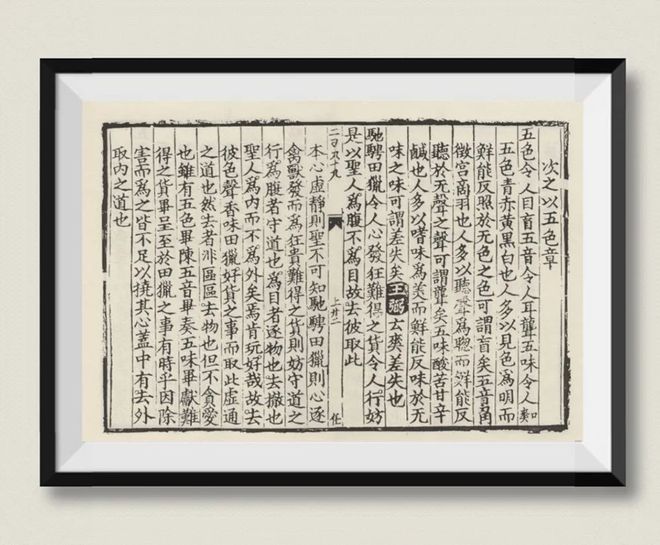 次之以五色章
五色令人目盲五音令人耳聾五味令人爽
五色青赤黄黑白也人多以見色爲明而
鮮能反照於无色之色可謂盲矣五音角
徵宮商羽也人多以聽聲爲聰而鮮能反
聽於无聲之聲可謂聾矣五味酸苦甘辛
鹹也人多以嗜味爲美而鮮能反味於无
味之味可謂差失矣王弼云爽差失也
馳騁田獵令人心發狂難得之貨令人行妨
是以聖人爲腹不爲目故去彼取此
上廿二
任
本心虛靜則聖不可知馳騁田獵則心逐
禽獸發而爲狂貴難得之貨則妨守道之
行爲腹者守道也爲目者逐物也去撤也
聖人爲内而不爲外矣焉肯玩好哉故去
彼色聲香味田獵好貨之事而取此虛通
之道也然去者非區區去物也但不貪愛
也雖有五色畢陳五音畢奏五味畢獻難
得之貨畢呈至於田獵之事有時乎因除
害而爲之皆不足以撓其心蓋中有去外
取内之道也